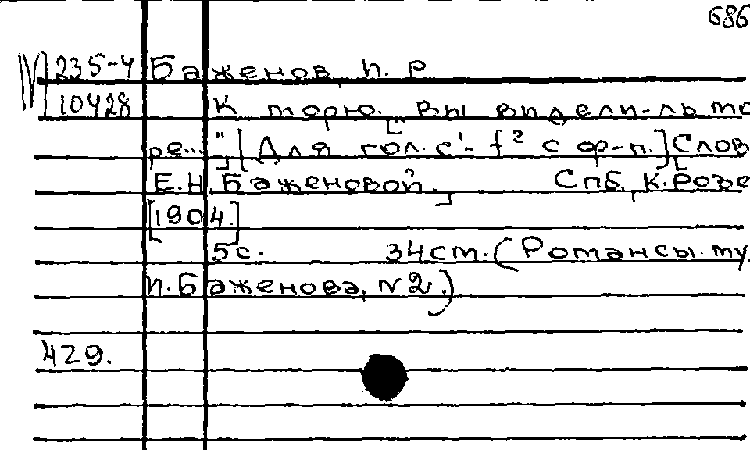 686
М 235-4 Баженов, П. Р.
10428 К морю. ["Вы видели-ль мо
ре..."] [Для гол. c¹- f² с ф-п.] [Слов
Е.Н. Баженовой.] Спб, К. Розе
[1904.]
5с. 34см. (Романсы. му
П. Баженова, N2.)
429.